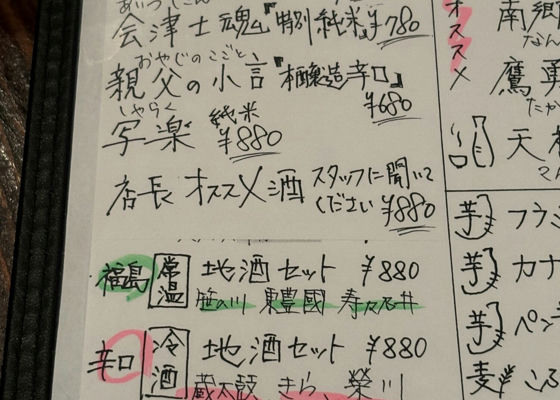 会津士魂『特別純米』¥780
おやじのこごと
親父の小言『本醸造辛口』
¥680
しゃらく
写楽 純米
¥880
店長オススメ酒 スタッフに聞いて
ください ¥880
福島 常温 地酒セット ¥880
笹の川 東豊國 寿々乃井
辛口 冷酒 地酒セット ¥880
蔵太鼓 きら、榮川
オススメ
南郷
なん
鷹勇
たか
天
芋 フラ
芋 カナ
芋 ペン
麦 こふ